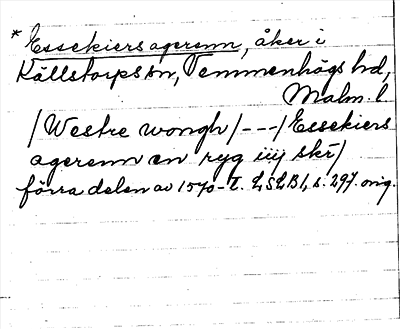 * Essekiersagerenn, åker i
Källstorps sn, Vemmenhögs hd,
Malm. l
/Westre wongh/ --- / Essekiers
agerenn en ryg iiij skr/
förra delen av 1570-t. LSLB1, s. 297. orig.